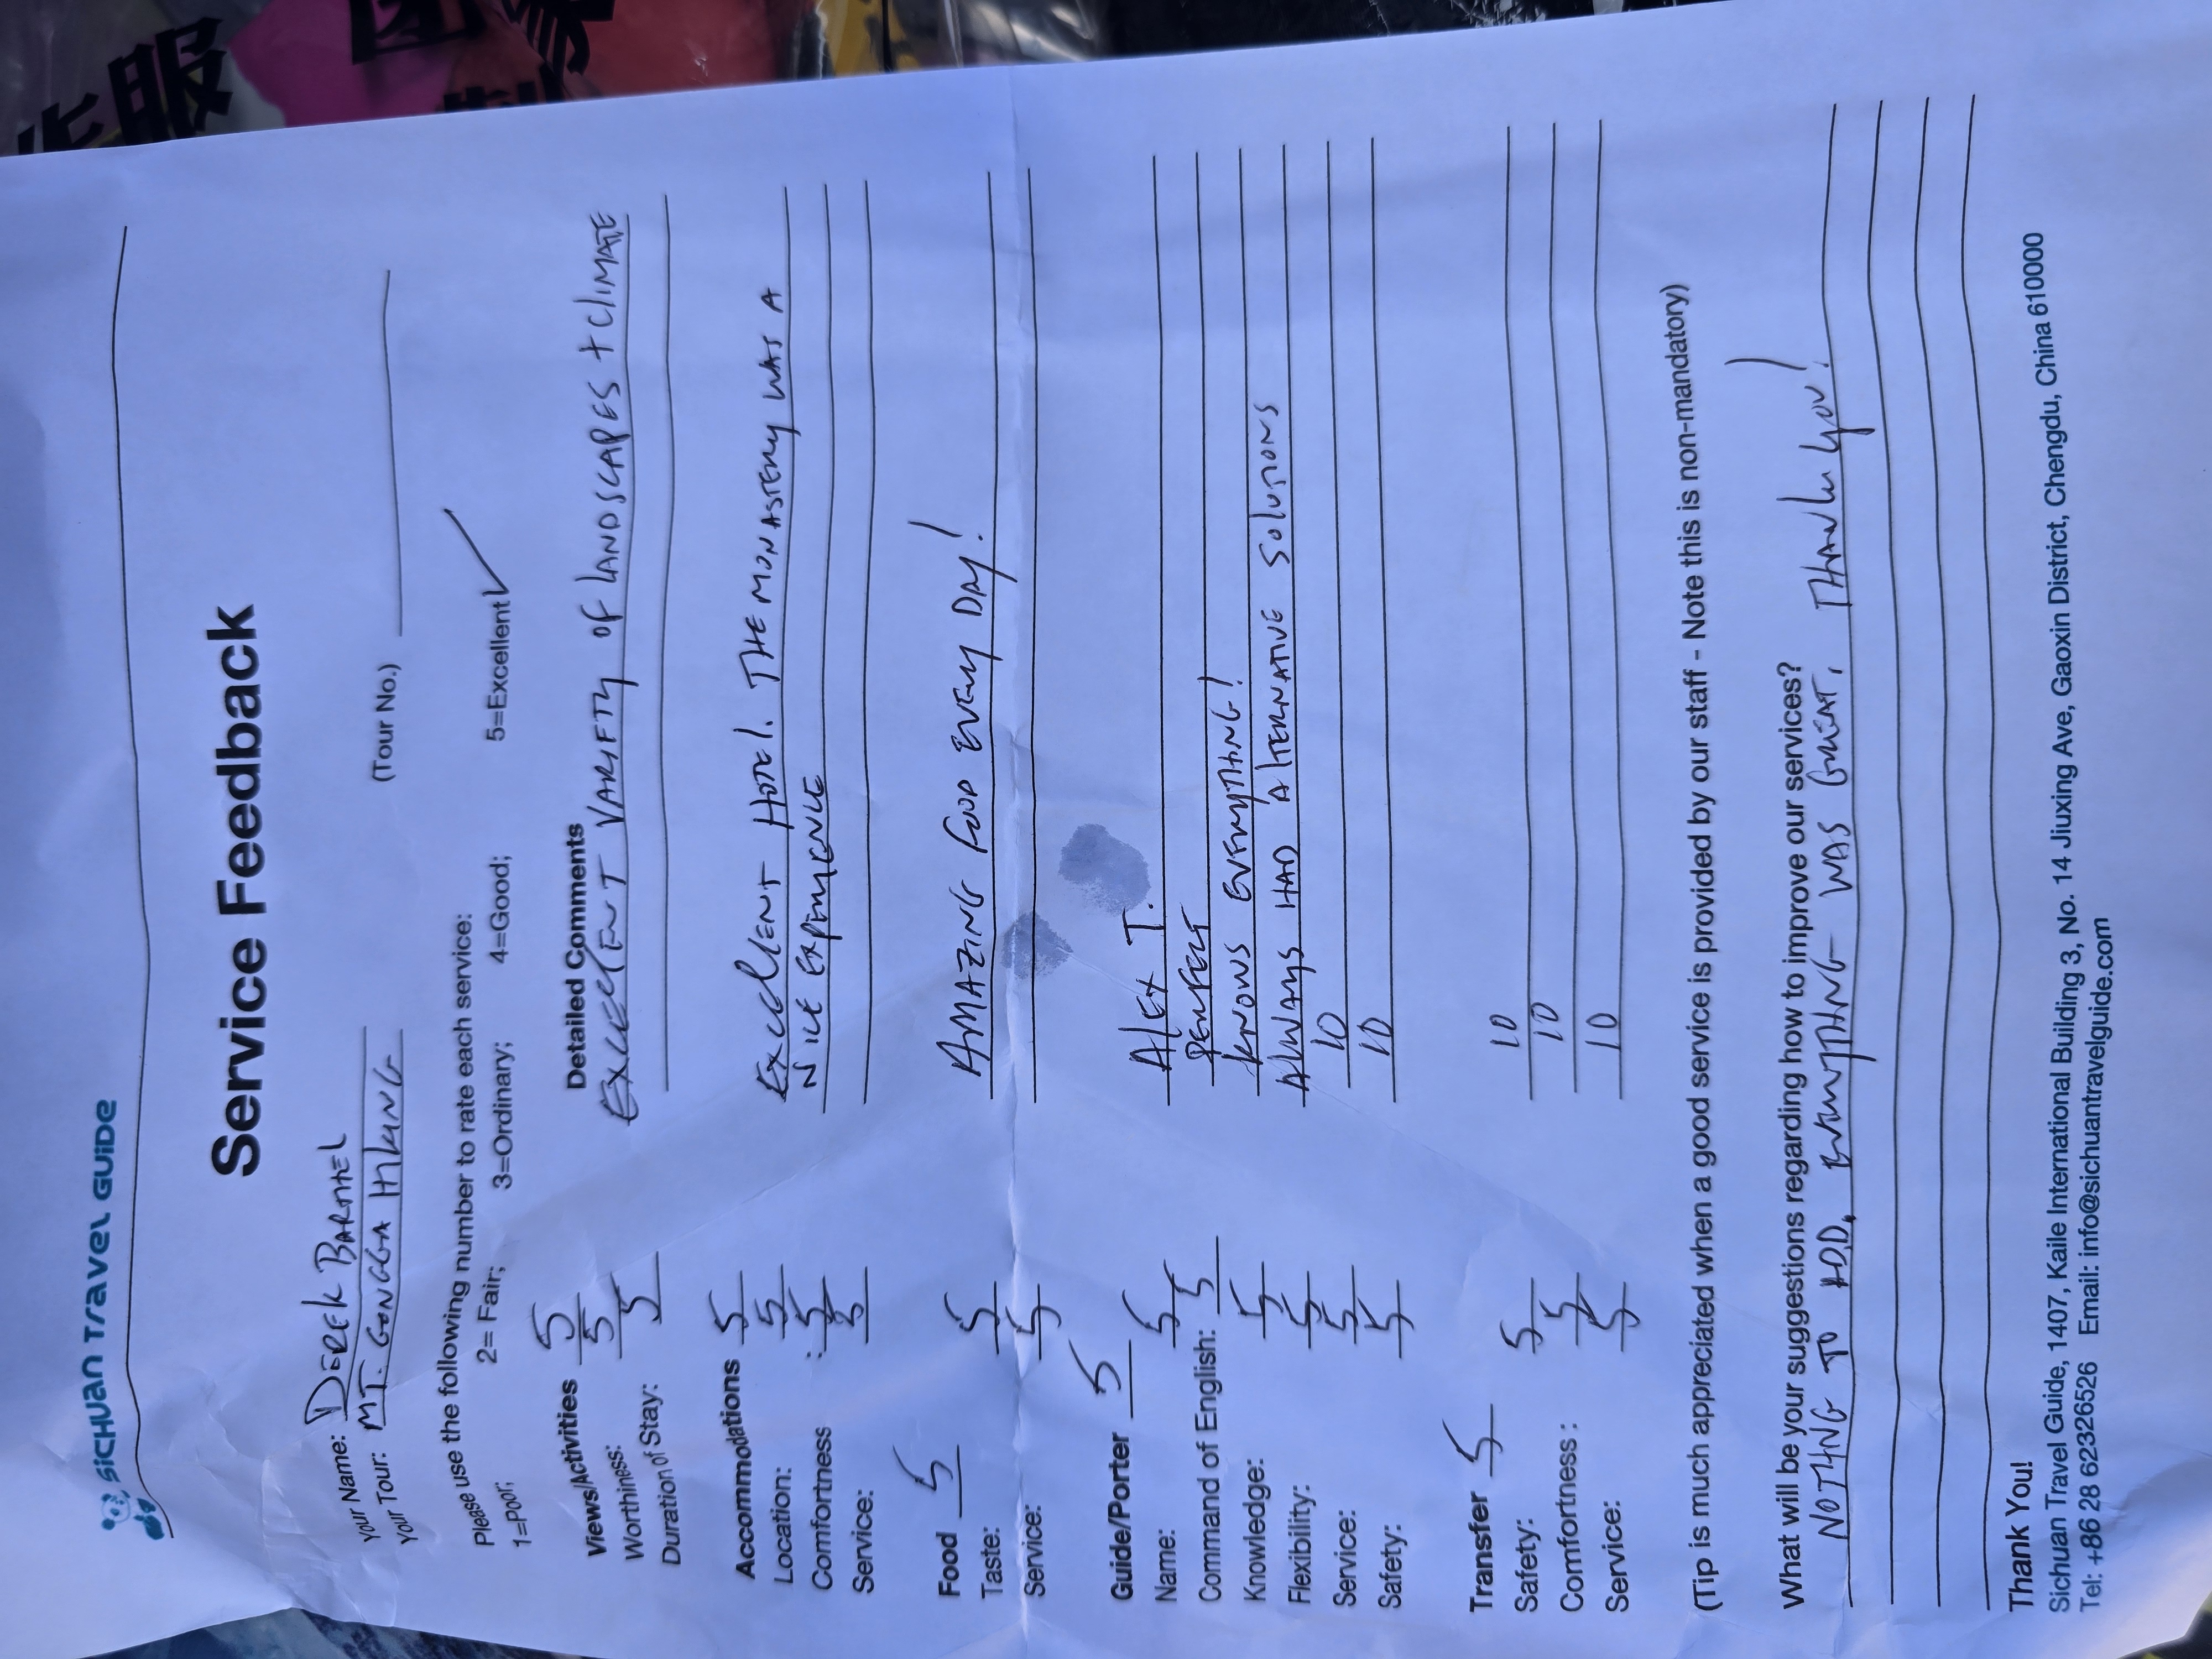 作服
国象
SICHUAN TRAVEL GUIDE
Service Feedback
Your Name: DEREK BARTHEL (Tour No.)
Your Tour: MT. GONGGA HIKING
Please use the following number to rate each service:
1=Poor; 2= Fair; 3=Ordinary; 4=Good; 5=Excellent ✓
Views/Activities 5 Detailed Comments
Worthiness: 5 EXCELLENT VARIETY OF LANDSCAPES + CLIMATE
Duration of Stay: 5
Accommodations 5
Location: 5 EXCELLENT HOTEL. THE MONASTERY WAS A
Comfortness : 5 NICE EXPERIENCE
Service: 5
Food 5
Taste: 5 AMAZING FOOD EVERY DAY!
Service: 5
Guide/Porter 5
Name: 5 ALEX T.
Command of English: 5 PERFECT
Knowledge: 5 KNOWS EVERYTHING!
Flexibility: 5 ALWAYS HAD ALTERNATIVE SOLUTIONS
Service: 5 10
Safety: 5 10
Transfer 5
Safety: 5 10
Comfortness : 5 10
Service: 5 10
(Tip is much appreciated when a good service is provided by our staff - Note this is non-mandatory)
What will be your suggestions regarding how to improve our services?
NOTHING TO ADD. EVERYTHING WAS GREAT. THANK YOU!
Thank You!
Sichuan Travel Guide, 1407, Kaile International Building 3, No. 14 Jiuxing Ave, Gaoxin District, Chengdu, China 610000
Tel: +86 28 62326526 Email: info@sichuantravelguide.com